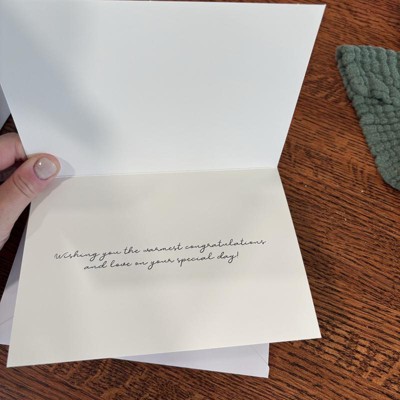 Wishing you the warmest congratulations
and love on your special day!